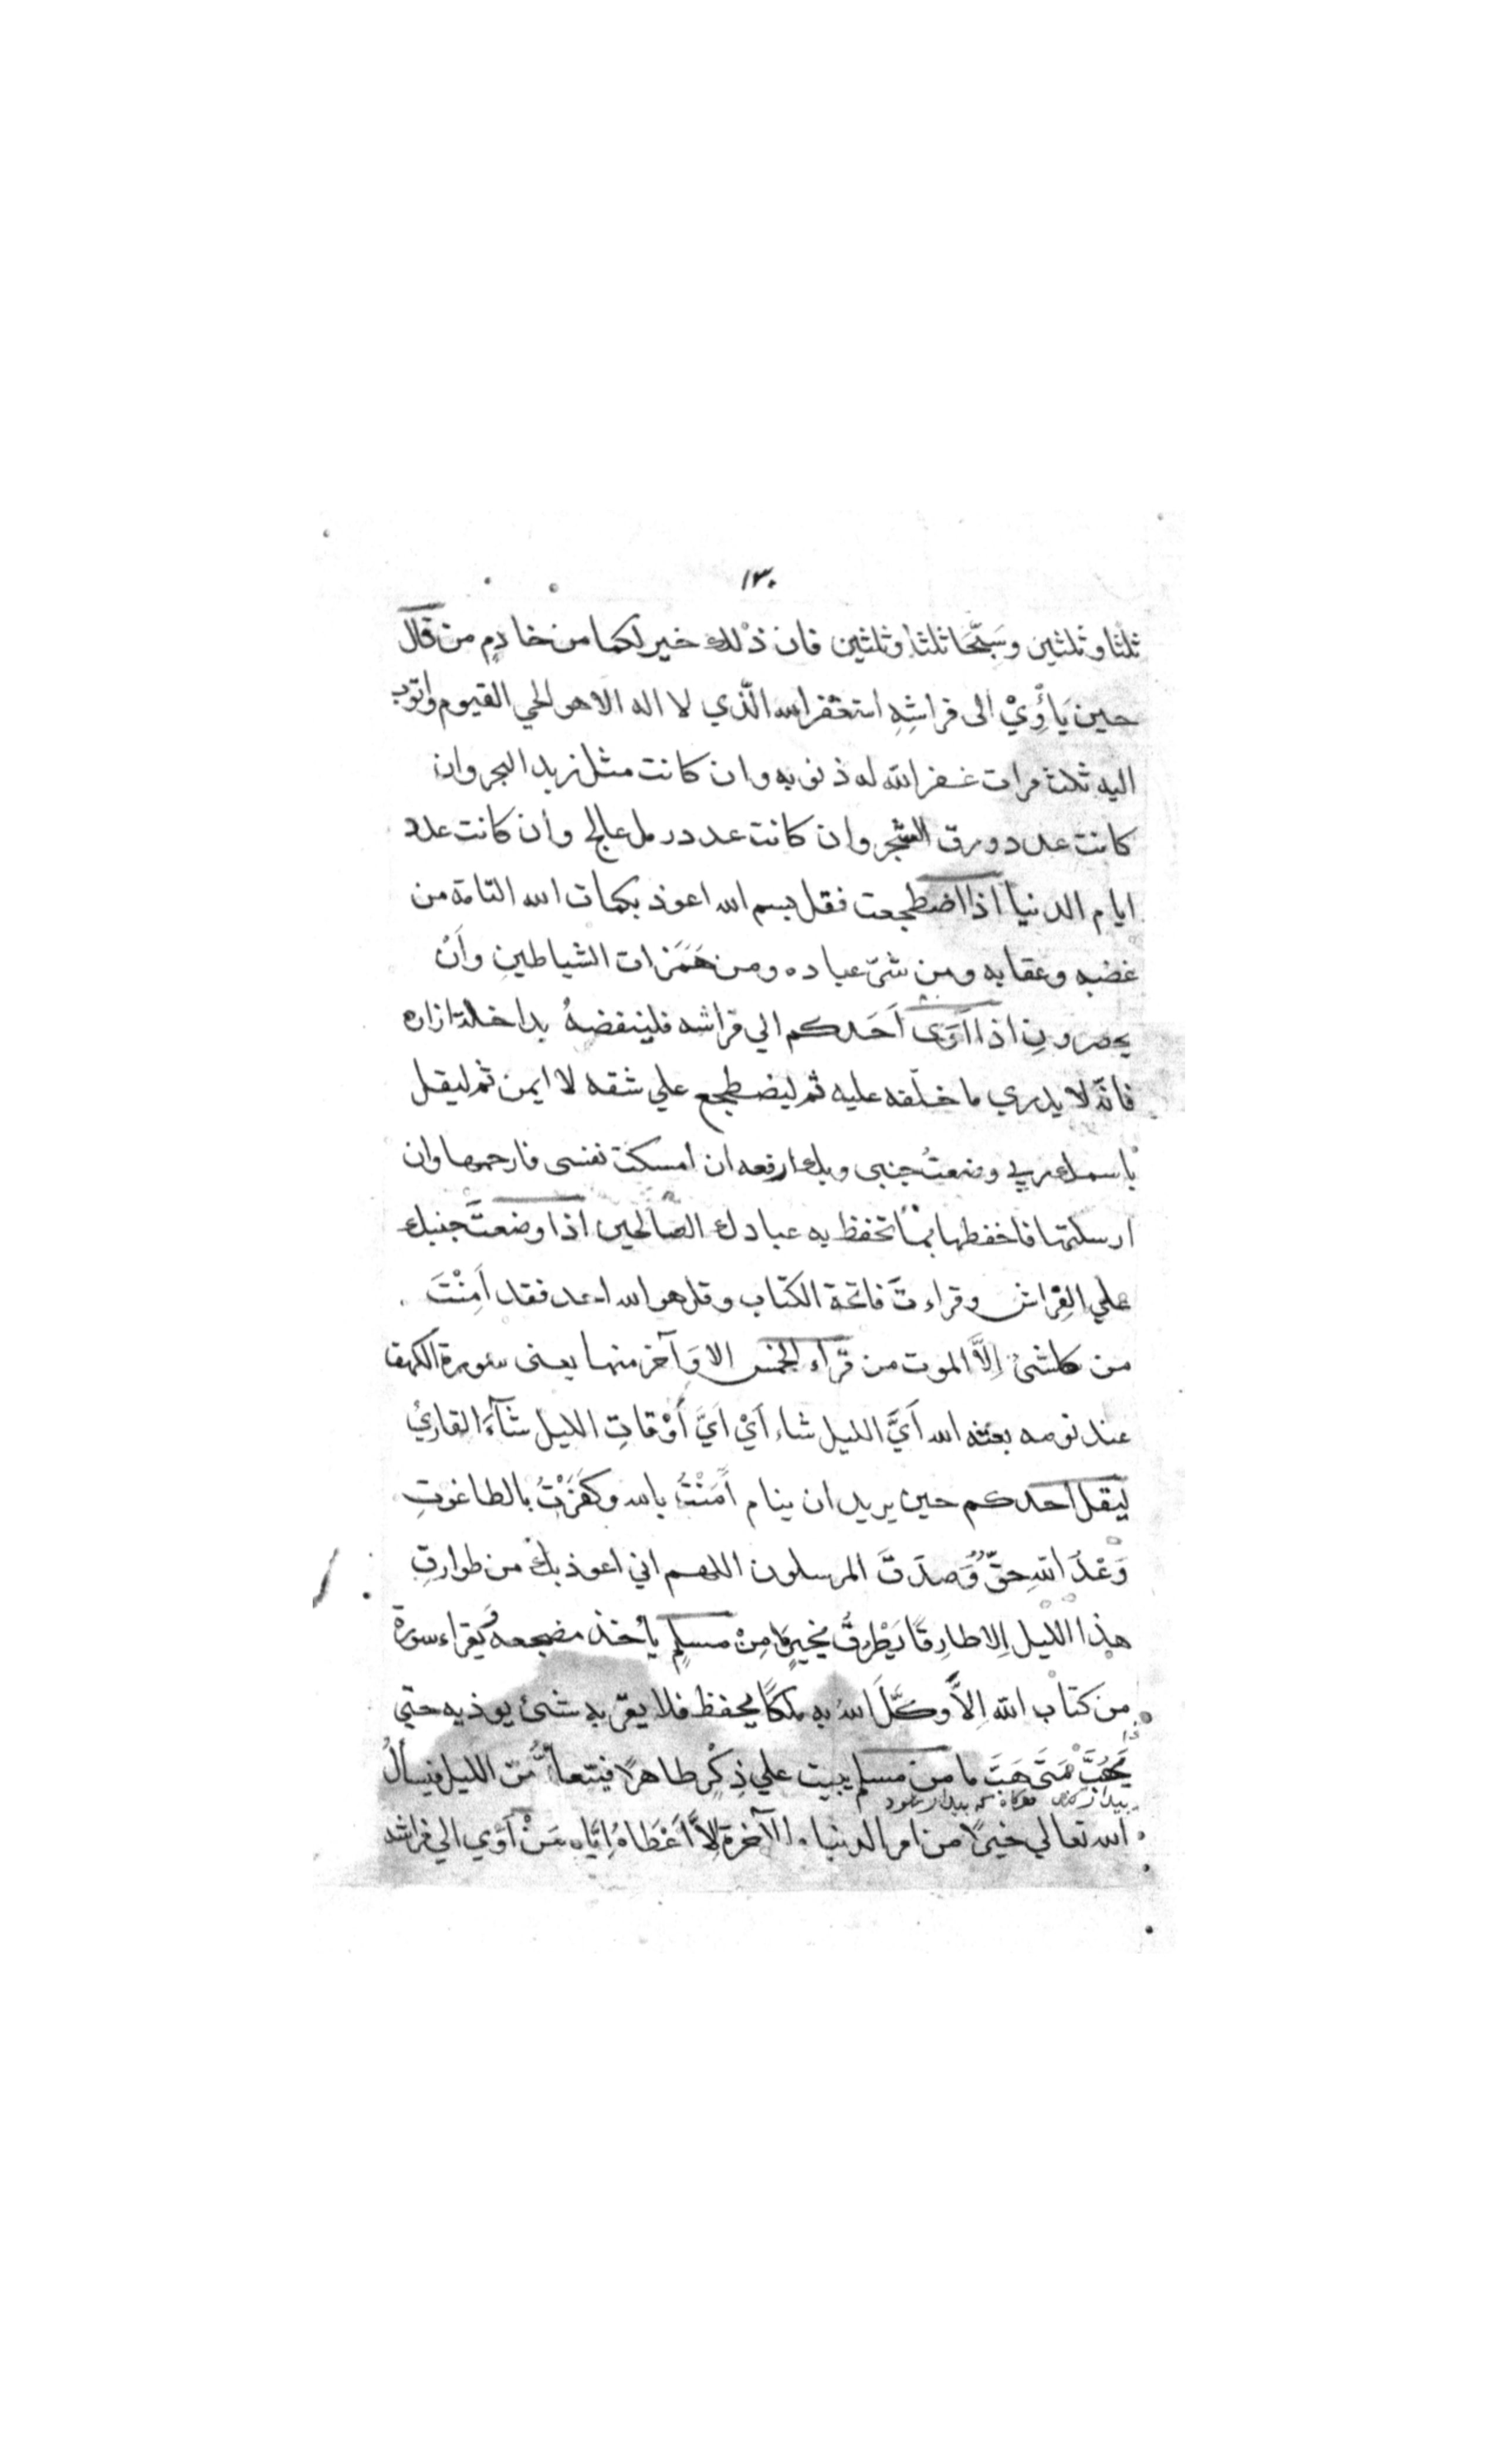 ١٣٠
ثلثا وثلثين وسَبِّحَا ثلثا وثلثين فان ذٰلك خير لكما من خادمٍ من قال
حين يَأْوِيْ الى فراشِهِ استغفر الله الّذي لا اله الا هو الحي القيوم واتوب
اليه ثلث مرات غفر الله له ذنوبه وان كانت مثل زبد البحر وان
كانت عدد ورق الشجر وان كانت عدد رمل عالج وان كانت عدد
ايام الدنيا اذا اضطجعت فقل بسم الله اعوذ بكلمات الله التامة من
غضبه وعقابه ومن شرّ عباده ومن هَمَزات الشياطينِ واَنْ
يحضرونِ اذا آوَى اَحَدكم الي فراشه فلينفضهُ بداخلة ازاره
فانّه لا يدري ما خلفه عليه ثم ليضطجع علي شقه لا ايمن ثم ليقل
باسمك ربي وضعتُ جنبى وبك ارفعه ان امسكت نفسى فارحمها وان
ارسلتها فاحفظها بما تحفظ به عبادك الصّالحين اذا وضعتَ جنبك
علي الفِراش وقراءتَ فاتحة الكتاب وقل هو الله احد فقد اَمِنْتَ
من كلشئ اِلاَّ الموت من قراء الخمس الاوَآخر منها يعنى سورة الكهف
عند نومه بعثه الله اَيَّ الليل شاء اَيْ اَيَّ اَوْقاتِ الليل شآءَ القاريُ
ليقل احدكم حين يريد ان ينام آمَنْتُ بالله وكفَرْتُ بالطاغوتِ
وَعْدُ اللهِ حقٌّ وَصدَقَ المرسلون اللهم اني اعوذ بك من طوارقِ
هذا الليل اِلا طارِقًا يَطْرقُ بخيرٍ ما مِنْ مسلمٍ يأخذ مضجعهُ يَقراء سورة
من كتاب الله اِلاَّ وكَّلَ اللهُ به ملكًا يحفظ فلا يقربه شئ يوذيه حتي
يَهُبَّ مَتَى هَبَّ ما من مسلم يبيت علي ذِكْرٍ طاهرًا فيتعارُّ من الليل فيسألُ
الله تعالي خيرًا من امر الدنيا والآخرة اِلاَّ اَعْطَاهُ اِيَّاه مَنْ آوي الي فراشه